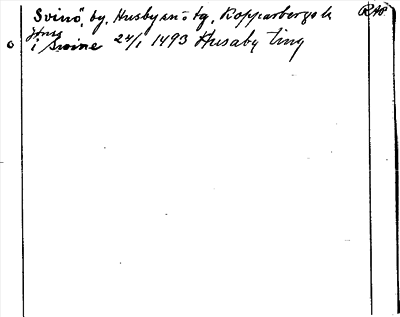 Svinö, by, Husby sn o tg, Kopparbergs l. RAP.
Jönss
i Swine 24/1 1493 Husaby ting